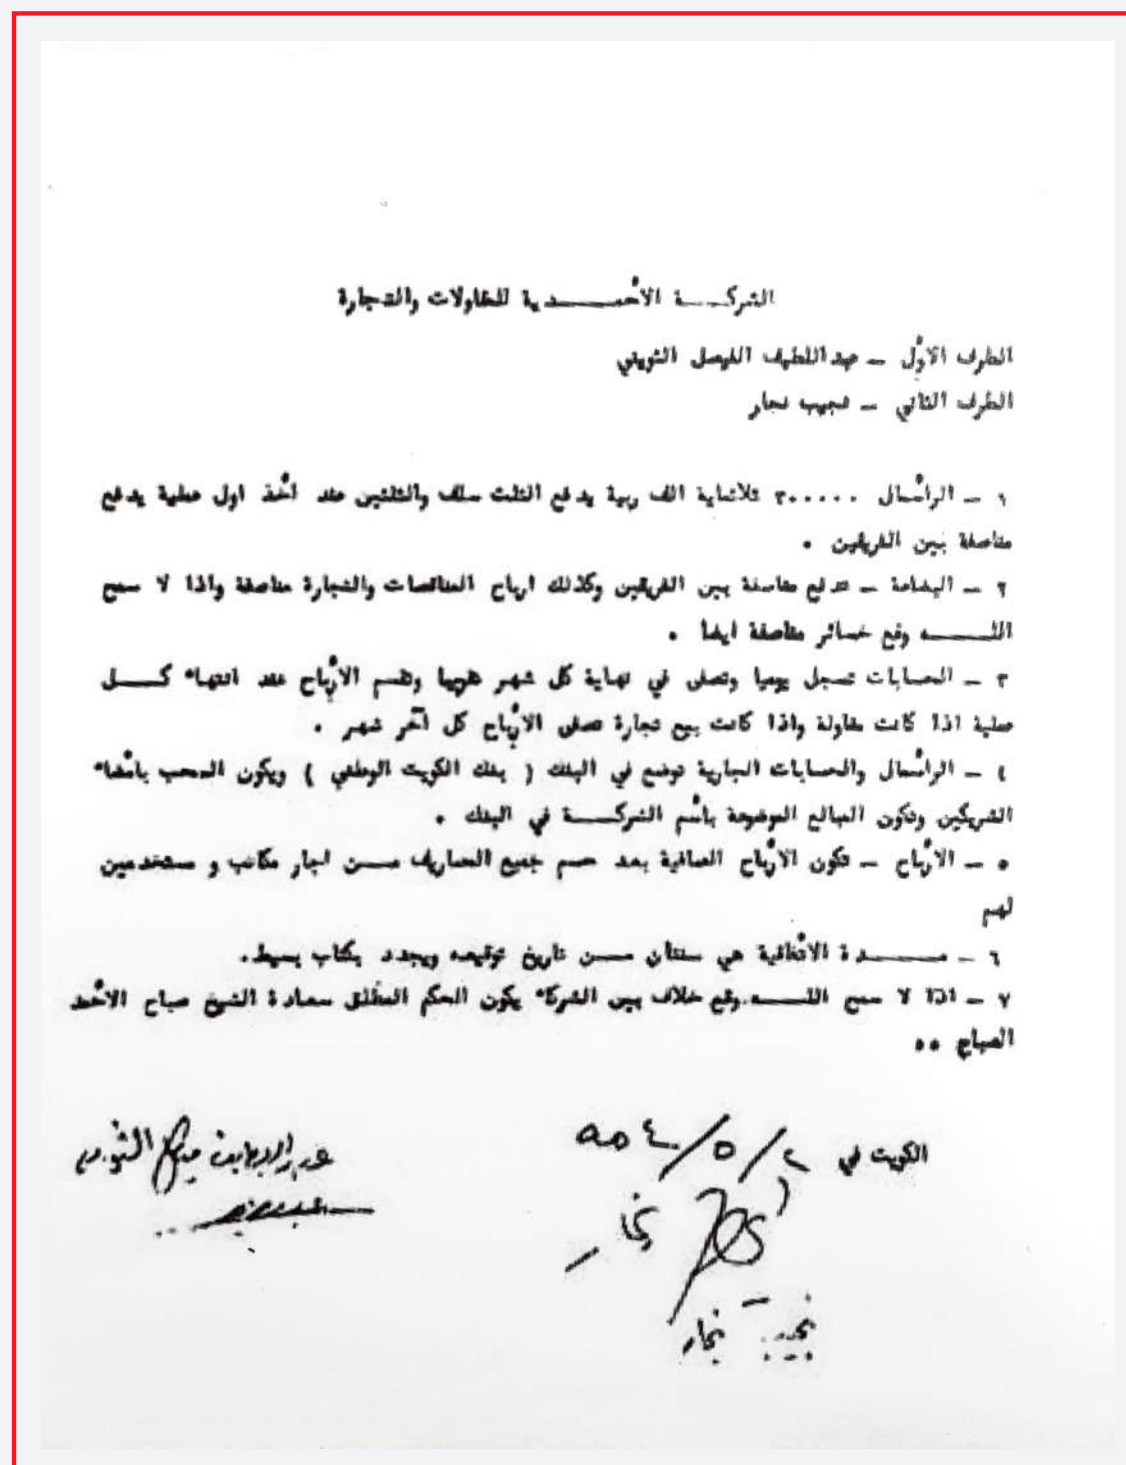 الشركـــة الأحمـــــدية للمقاولات والتجارة
الطرف الأوّل ــ عبد اللطيف الفيصل الثويني
الطرف الثاني ــ نجيب نجار
١ ــ الرأسمال ٣٠٠٠٠٠ ثلاثماية الف ربية يدفع الثلث سلف والثلثين عند أخذ اول عملية يدفع
مناصفة بين الفريقين .
٢ ــ البضاعة ــ تدفع مناصفة بين الفريقين وكذلك ارباح المناقصات والتجارة مناصفة واذا لا سمح
اللـــــه وقع خسائر مناصفة ايضا .
٣ ــ الحسابات تسجل يوميا وتصفى في نهاية كل شهر وتقسم الأرباح عند انتهاء كـــل
عملية اذا كانت مقاولة واذا كانت بيع تجارة تصفى الأرباح كل آخر شهر .
٤ ــ الرأسمال والحسابات الجارية توضع في البنك ( بنك الكويت الوطني ) ويكون السحب بامضاء
الشريكين وتكون المبالغ الموضوعة بأسم الشركـــة في البنك .
٥ ــ الأرباح ــ تكون الأرباح الصافية بعد حسم جميع المصاريف مـــن اجار مكاتب و مستخدمين
لهم
٦ ــ مـــــدة الاتفاقية هي سنتان مـــن تاريخ توقيعه ويجدد بكتاب بسيط.
٧ ــ اذا لا سمح اللـــــه وقع خلاف بين الشركاء يكون الحكم المطلق سعادة الشيخ صباح الأحمد
الصباح ..
الكويت في ٢/٥/٩٥٤
نجار
نجيب نجار